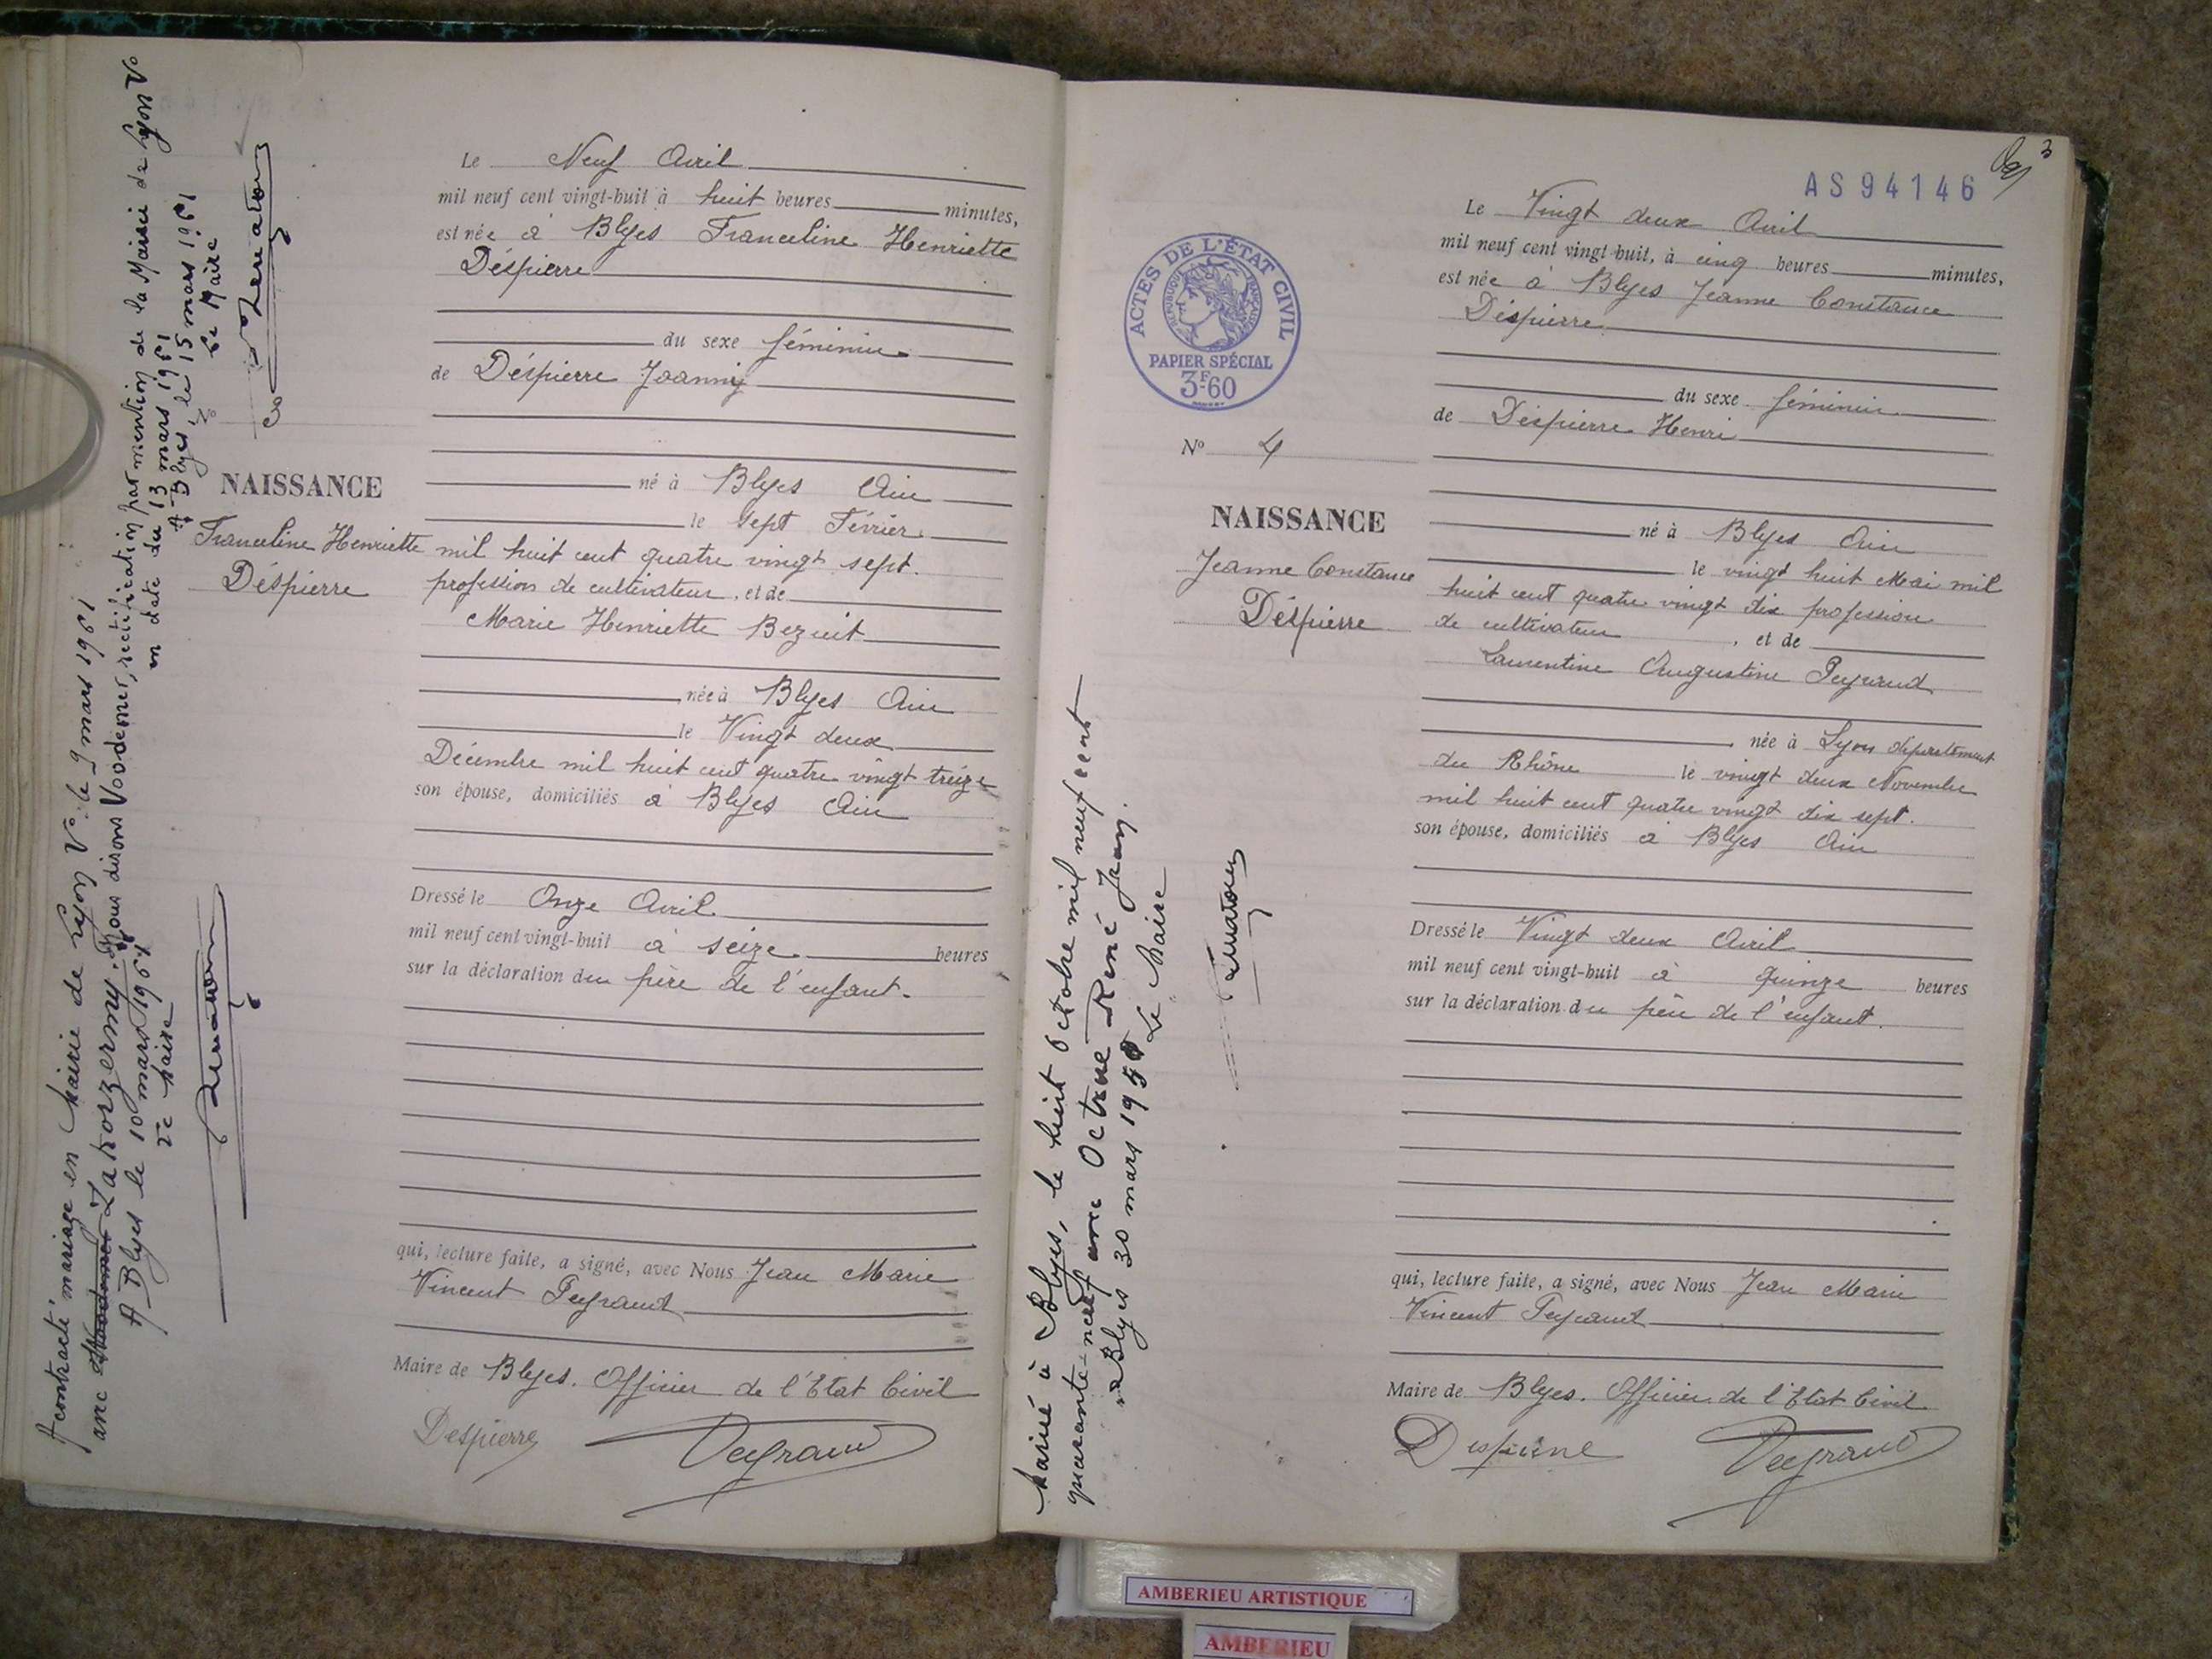 Le Neuf Avril
mil neuf cent vingt-huit à huit heures minutes,
est née à Blyes Franceline Henriette
Déspierre
du sexe féminin
de Déspierre Joanny
né à Blyes Ain
le sept Février
mil huit cent quatre vingt sept.
profession de cultivateur, et de
Marie Henriette Bezuit
née à Blyes Ain
le Vingt deux
Décembre mil huit cent quatre vingt treize
son épouse, domiciliés à Blyes Ain
Dressé le Onze Avril
mil neuf cent vingt-huit à seize heures
sur la déclaration du père de l'enfant.
qui, lecture faite, a signé, avec Nous Jean Marie
Vincent Peyraud
Maire de Blyes. Officier de l'Etat Civil
Despierre Peyraud
N° 3
NAISSANCE
Franceline Henriette
Déspierre
A contracté mariage en Mairie de Lyon V° le 9 mars 1961
avec Zakorzermy. Nous disons Voodemer, rectification par mention de la Mairie de Lyon V°
en date du 13 mars 1961
A Blyes le 10 mars 1961
Le Maire
A Blyes, le 15 mars 1961
Le Maire
AS 94146
3
ACTES DE L'ÉTAT CIVIL
RÉPUBLIQUE FRANÇAISE
PAPIER SPÉCIAL
3F60
N° 4
NAISSANCE
Jeanne Constance
Déspierre
Le Vingt deux Avril
mil neuf cent vingt-huit, à cinq heures minutes,
est née à Blyes Jeanne Constance
Déspierre
du sexe féminin
de Déspierre Henri
né à Blyes Ain
le vingt huit Mai mil
huit cent quatre vingt dix profession
de cultivateur, et de
Laurentine Augustine Peyraud
née à Lyon département
du Rhône le vingt deux Novembre
mil huit cent quatre vingt dix sept.
son épouse, domiciliés à Blyes Ain
Dressé le Vingt deux Avril
mil neuf cent vingt-huit à quinze heures
sur la déclaration du père de l'enfant.
qui, lecture faite, a signé, avec Nous Jean Marie
Vincent Peyraud
Maire de Blyes. Officier de l'Etat Civil
Despierre Peyraud
Marié à Blyes, le huit Octobre mil neuf cent
quarante-neuf avec Octrue René Jean.
à Blyes 30 mars 195
Le Maire
AMBERIEU ARTISTIQUE
AMBERIEU